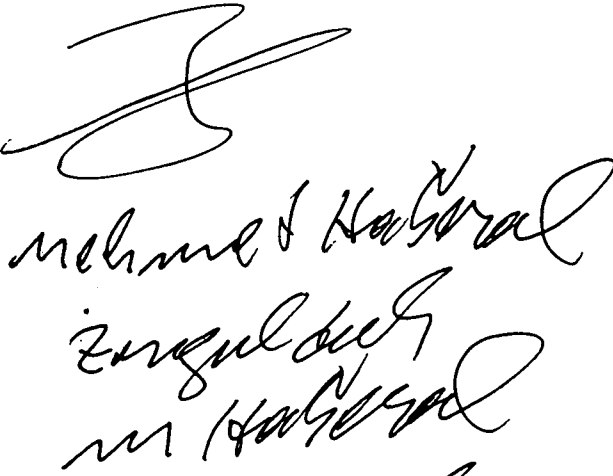 Mehmet Haberal
Zonguldak
M Haberal